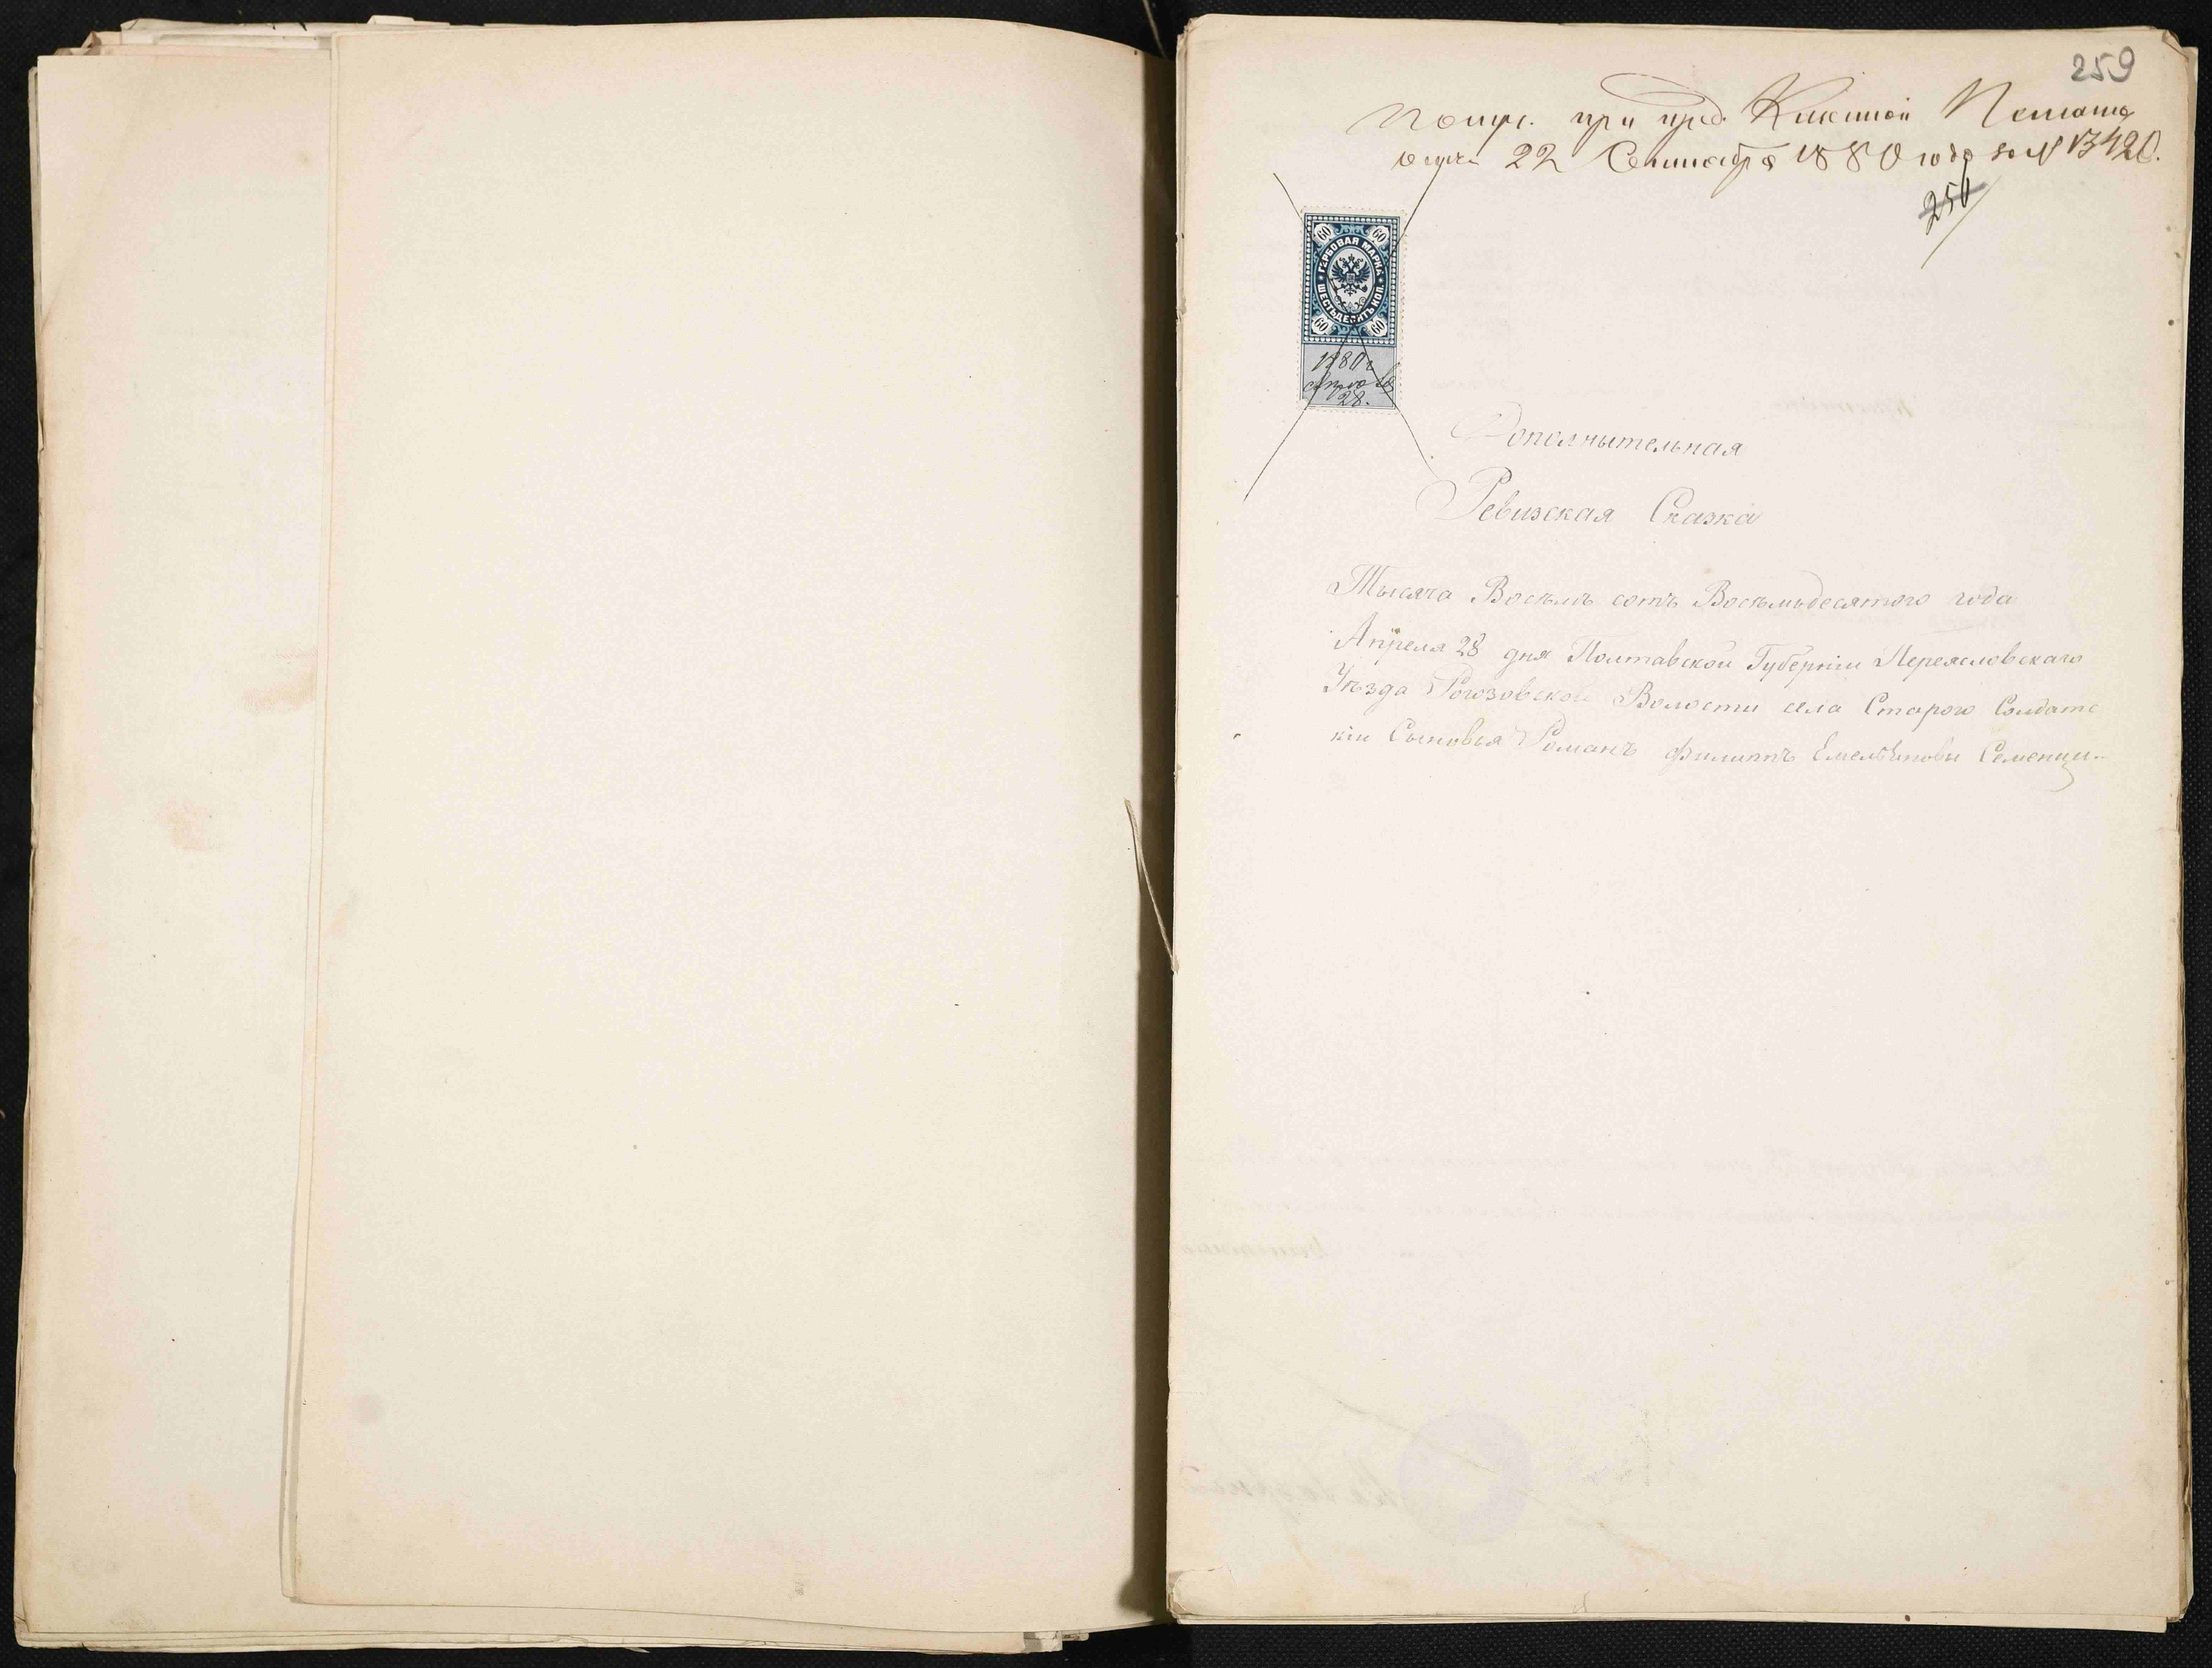 259
Получ. при пред. Кіевской Казен. Палаты
отъ 22 Сентября 1880 года за № 13420.
256
60 60
ГЕРБОВАЯ МАРКА
ШЕСТЬДЕСЯТЪ КОП.
60 60
1880 г
Апреля
28.
Дополнытельная
Ревизская Сказка
Тысяча Восѣмъ сотъ Восѣмьдесятого года
Апреля 28 дня Полтавской Губерніи Переясловскаго
Уѣзда Рогозовской Волости села Старого Солдатс
кіи Сыновья Романъ Филиппъ Емелѣяновы Семенци-